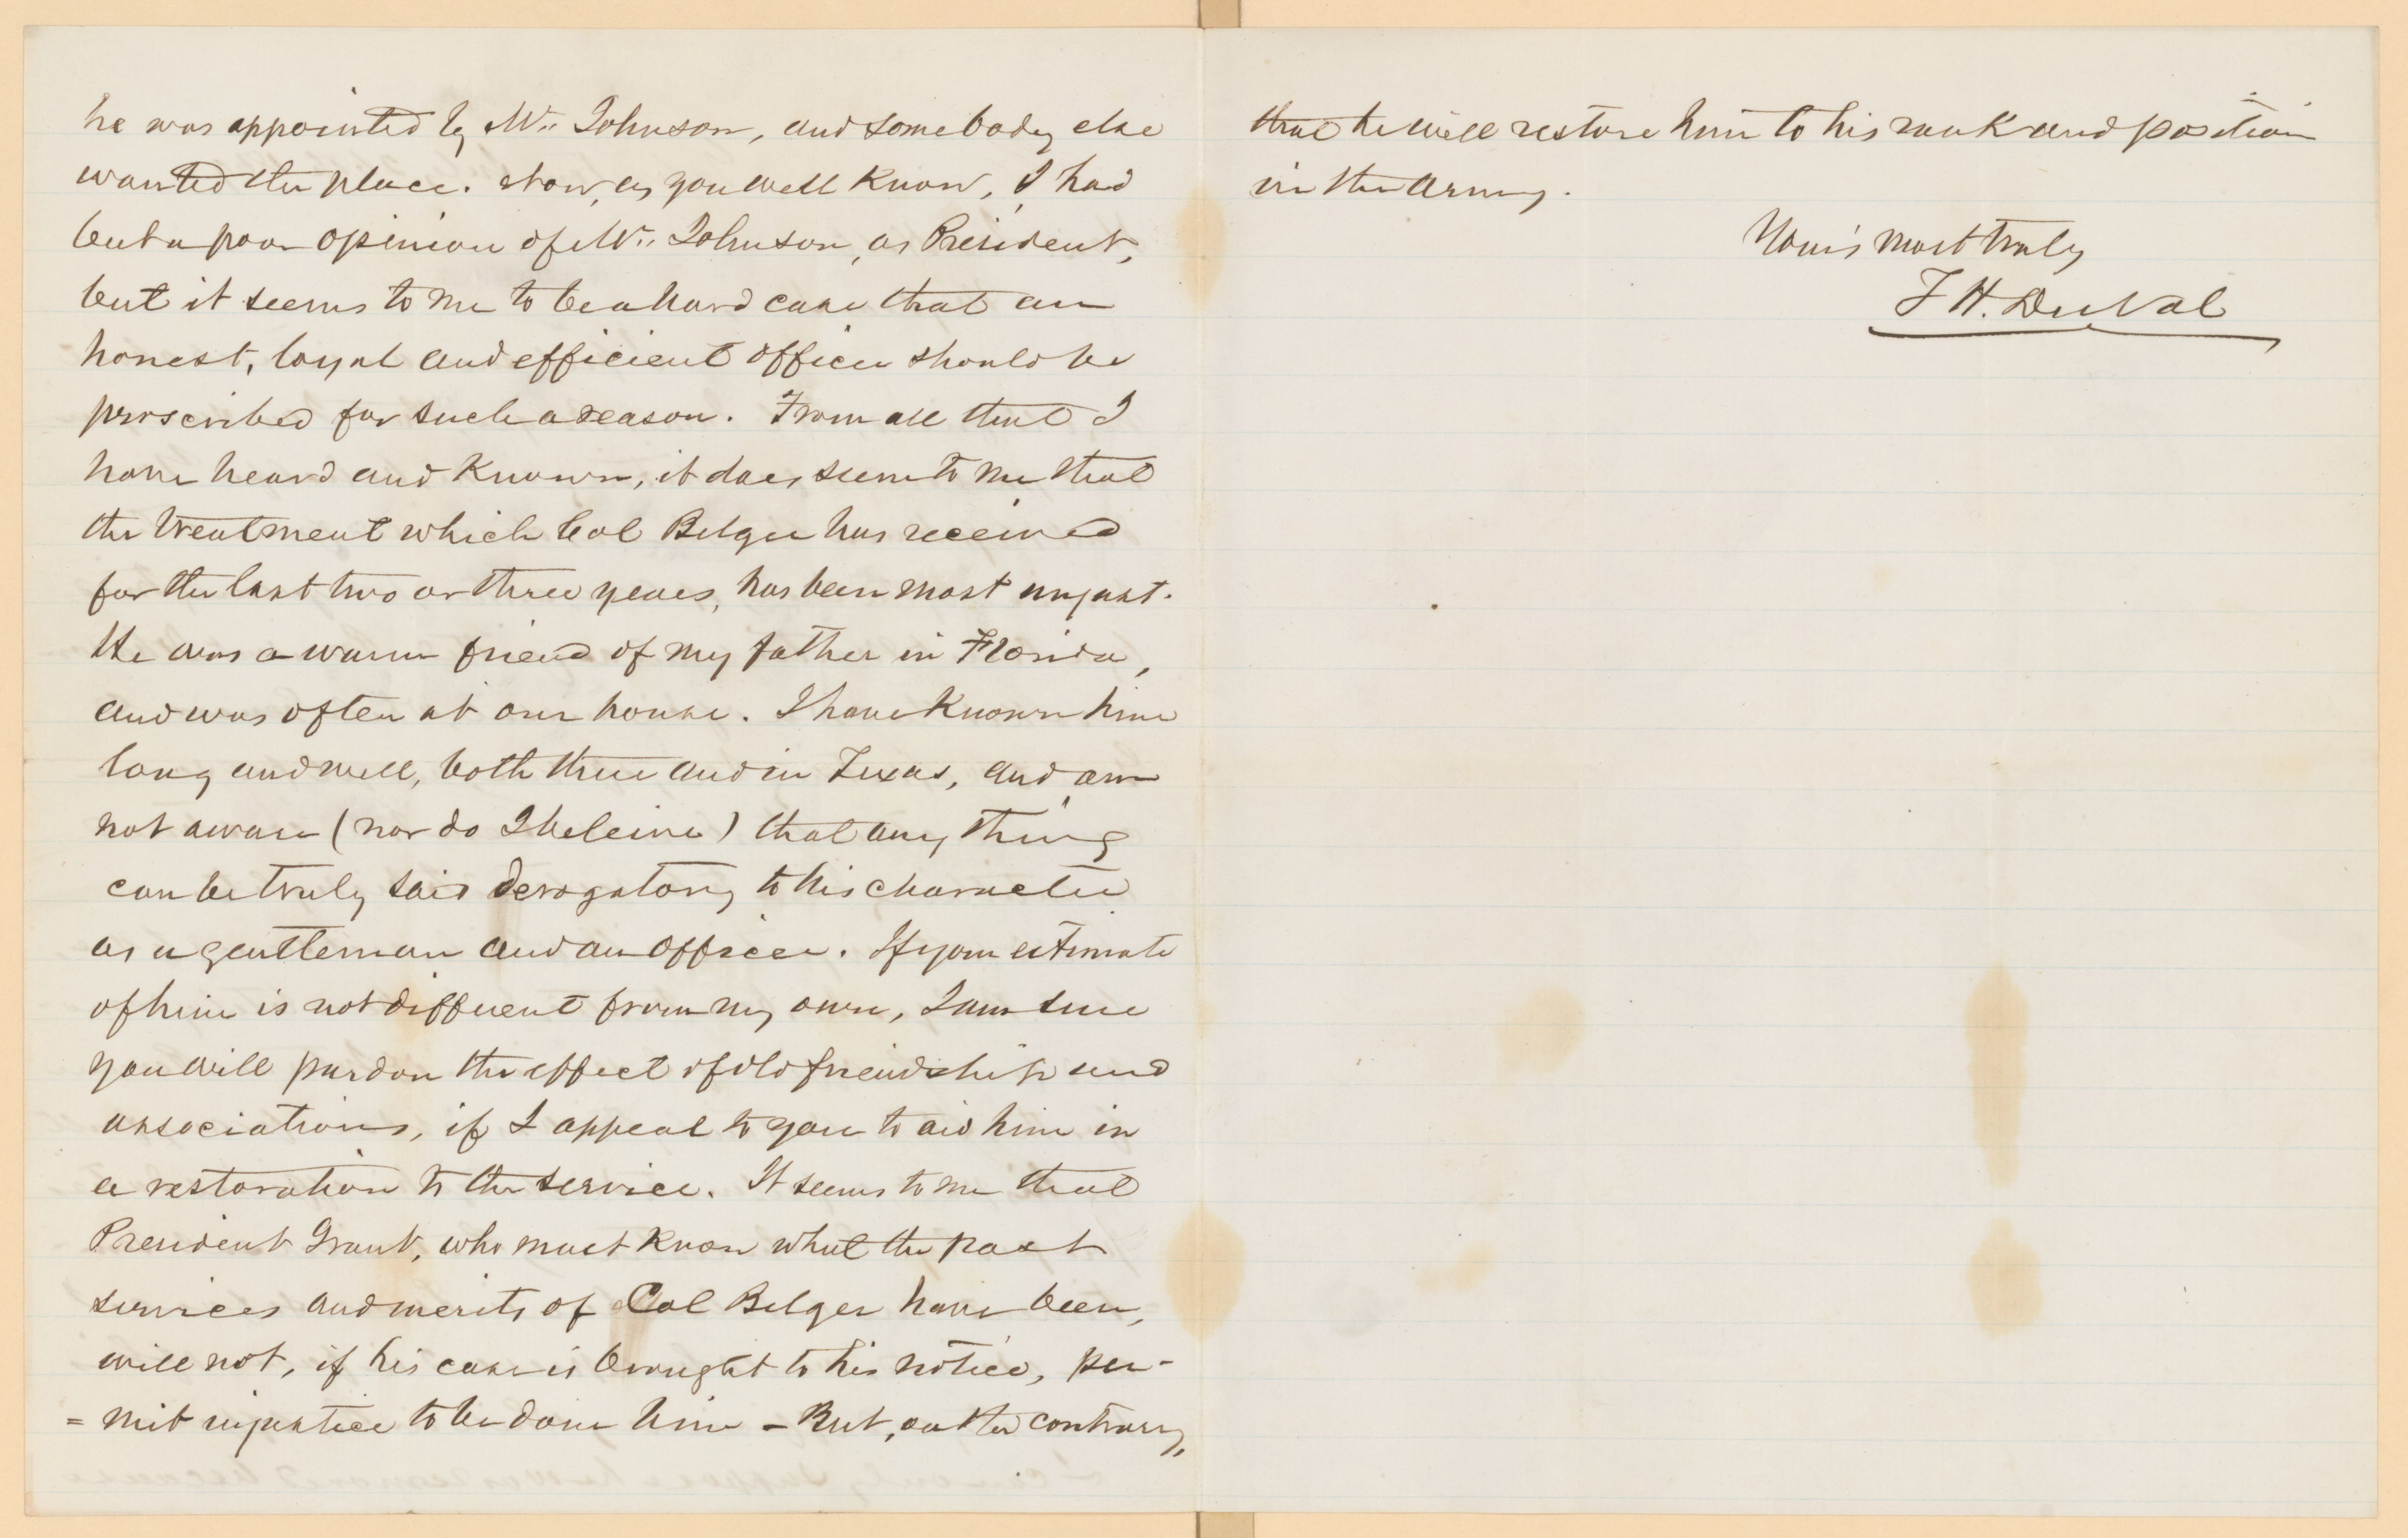 he was appointed by Mr. Johnson, and somebody else
wanted the place. Now, as you well know, I had
but a poor opinion of Mr. Johnson, as President,
but it seems to me to be a hard case that an
honest, loyal and efficient officer should be
proscribed for such a reason. From all that I
have heard and known, it does seem to me that
the treatment which Col Belger has received
for the last two or three years, has been most unjust.
He was a warm friend of my father in Florida,
and was often at our house. I have known him
long and well, both there and in Texas, and am
not aware (nor do I beleive) that any thing
can be truly said derogatory to his character
as a gentleman and an officer. If your estimate
of him is not different from my own, I am sure
you will pardon the effect of old friendship and
associations, if I appeal to you to aid him in
a restoration to the service. It seems to me that
President Grant, who must know what the past
services and merits of Col Belger have been,
will not, if his case is brought to his notice, per-
= mit injustice to be done him - But, on the contrary,
that he will restore him to his rank and position
in the army.
Yours most truly
T H. DuVal